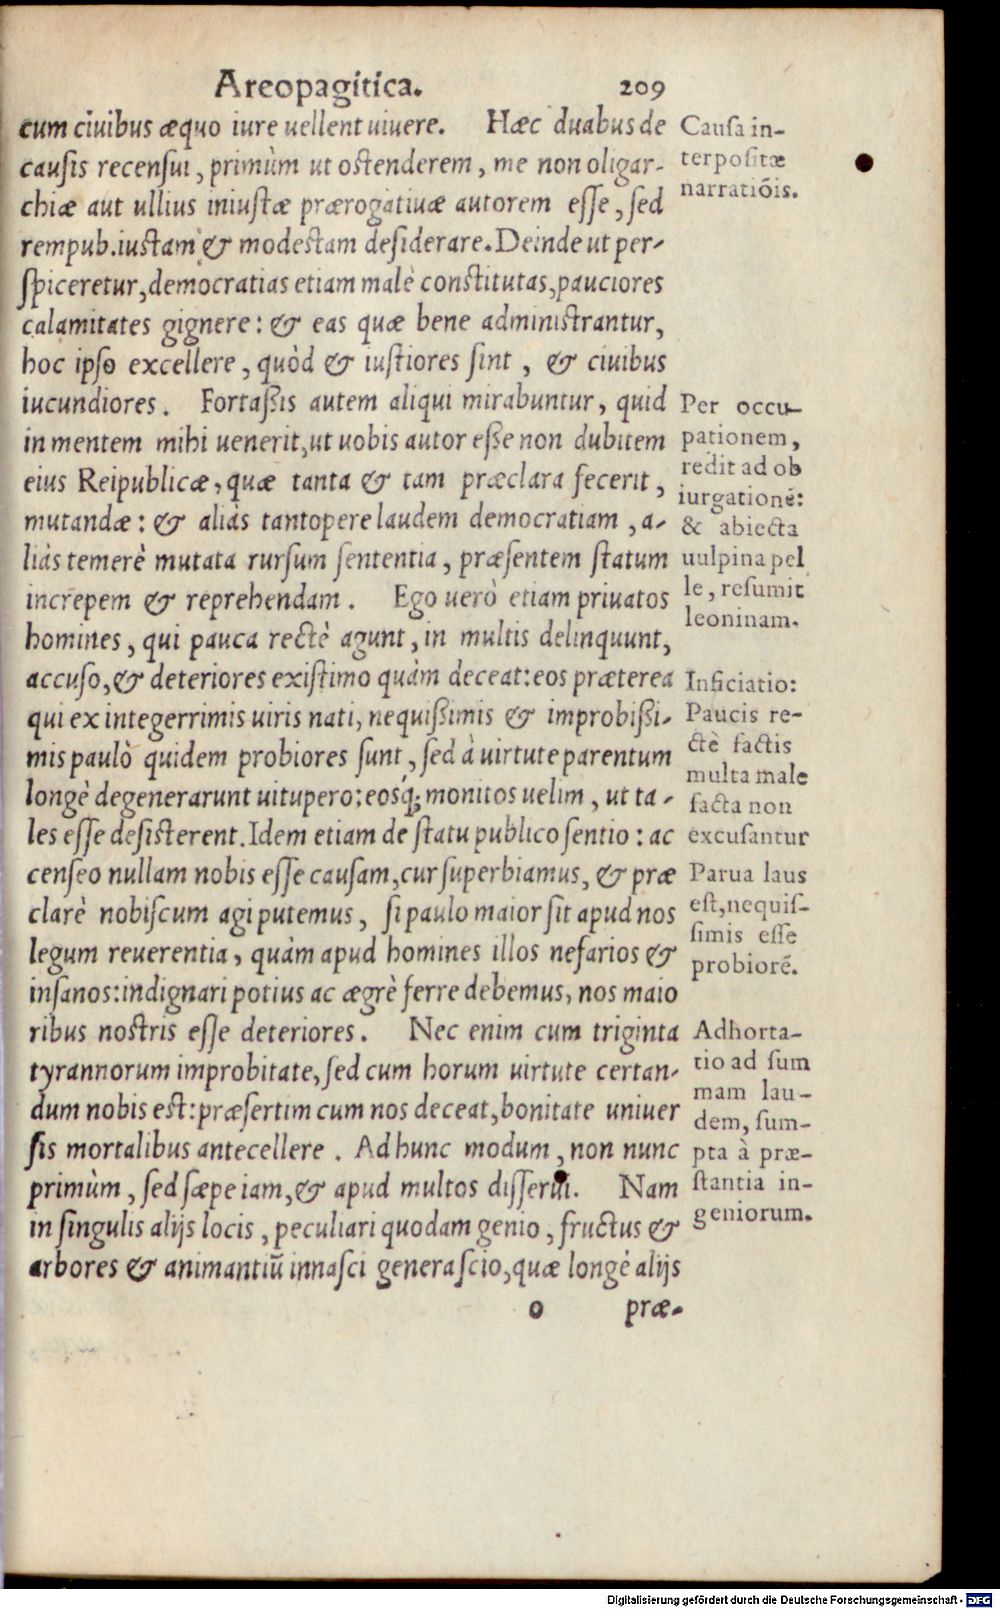 Areopagitica. 209
cum ciuibus æquo iure uellent uiuere. Hæc duabus de
causis recensui, primùm ut ostenderem, me non oligar-
chiæ aut ullius iniustæ prærogatiuæ autorem esse, sed
rempub. iustam & modestam desiderare. Deinde ut per-
spiceretur, democratias etiam malè constitutas, pauciores
calamitates gignere: & eas quæ bene administrantur,
hoc ipso excellere, quòd & iustiores sint, & ciuibus
iucundiores. Fortaßis autem aliqui mirabuntur, quid
in mentem mihi uenerit, ut uobis autor eße non dubitem
eius Reipublicæ, quæ tanta & tam præclara fecerit,
mutandæ: & aliàs tantopere laudem democratiam, a-
liàs temerè mutata rursum sententia, præsentem statum
increpem & reprehendam. Ego uerò etiam priuatos
homines, qui pauca rectè agunt, in multis delinquunt,
accuso, & deteriores existimo quàm deceat: eos præterea
qui ex integerrimis uiris nati, nequißimis & improbißi-
mis paulò quidem probiores sunt, sed à uirtute parentum
longè degenerarunt uitupero: eosq́; monitos uelim, ut ta-
les esse desisterent. Idem etiam de statu publico sentio: ac
censeo nullam nobis esse causam, cur superbiamus, & præ
clarè nobiscum agi putemus, si paulo maior sit apud nos
legum reuerentia, quàm apud homines illos nefarios &
insanos: indignari potius ac ægrè ferre debemus, nos maio
ribus nostris esse deteriores. Nec enim cum triginta
tyrannorum improbitate, sed cum horum uirtute certan-
dum nobis est: præsertim cum nos deceat, bonitate uniuer
sis mortalibus antecellere. Ad hunc modum, non nunc
primùm, sed sæpe iam, & apud multos disserui. Nam
in singulis alijs locis, peculiari quodam genio, fructus &
arbores & animantiũ innasci genera scio, quæ longè alijs
o præ-
Causa in-
terpositæ
narratiõis.
Per occu-
pationem,
redit ad ob
iurgationẽ:
& abiecta
uulpina pel
le, resumit
leoninam.
Inficiatio:
Paucis re-
ctè factis
multa male
facta non
excusantur
Parua laus
est, nequis-
simis esse
probiorẽ.
Adhorta-
tio ad sum
mam lau-
dem, sum-
pta à præ-
stantia in-
geniorum.
Digitalisierung gefördert durch die Deutsche Forschungsgemeinschaft - DFG